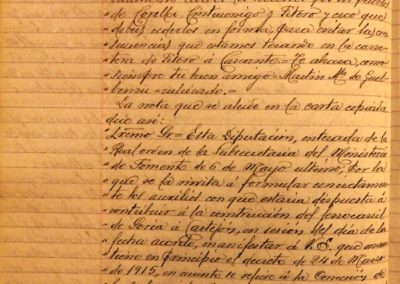 " de Corella, Cintruenigo y Fitero y creo que
" debeis cederlos en forma, para evitar las con-
" secuencias que estamos tocando en la carre-
" tera de Fitero á Cascante = Te abraza, como
" siempre tu buen amigo = Martín Mª de Guel-
" benzu = rubricado. =
La nota que se alude en la carta copiada
dice así:
" Excmo Sr = Esta Diputación, enterada de la
" Real orden de la Subsecretaria del Ministerio
" de Fomento de 6 de Mayo ultimo, por la
" que se la invita á formular concretamen-
" te los auxilios con que estaria dispuesta á
" contribuir á la construcción del ferrocarril
" de Soria á Castejón, en sesión del dia de la
" fecha acordó, manifestar á V. E. que man-
" tiene en principio el decreto de 24 de Marzo
" de 1915, en cuanto se refiere á la Concesión de